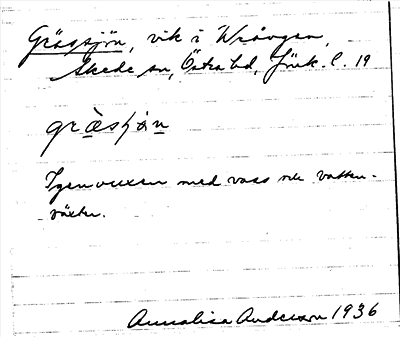 Grässjön, vik i Wrången,
Skede sn, Östra hd, Jönk. l. 19
gräsʃön
Igenvuxen med vass och vatten-
växter.
Annalisa Anderson 1936